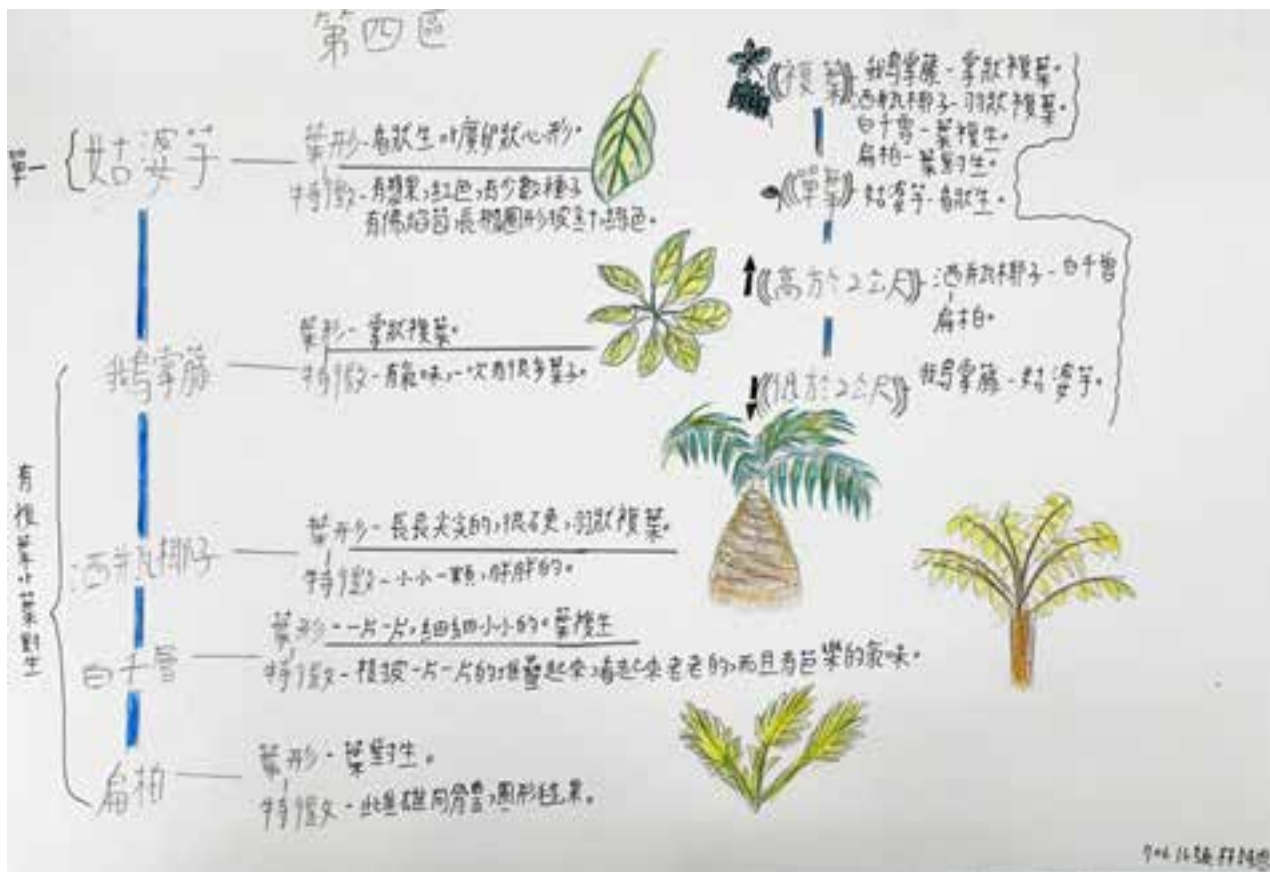 第四區
單一
姑婆芋
葉形-島狀生。廣卵狀心形。
特徵-有漿果,紅色,有少數種子
有佛焰苞長橢圓形 綠色。
鵝掌藤
葉形-掌狀複葉。
特徵-有氣味,一次有很多葉子。
有複葉小葉對生
酒瓶椰子
葉形-長長尖尖的,很硬,羽狀複葉。
特徵-小小一顆,胖胖的。
白千層
葉形-一片一片,細細小小的。葉複生
特徵-樹皮一片一片的堆疊起來,看起來老老的,而且有芭樂的氣味。
扁柏
葉形-葉對生。
特徵-雌雄同 ,圓形毬果。
《複葉》
鵝掌藤-掌狀複葉。
酒瓶椰子-羽狀複葉。
白千層-葉複生。
扁柏-葉對生。
《單葉》
姑婆芋-島狀生。
《高於2公尺》
酒瓶椰子-白千層
扁柏。
《低於2公尺》
鵝掌藤-姑婆芋。
706 16號